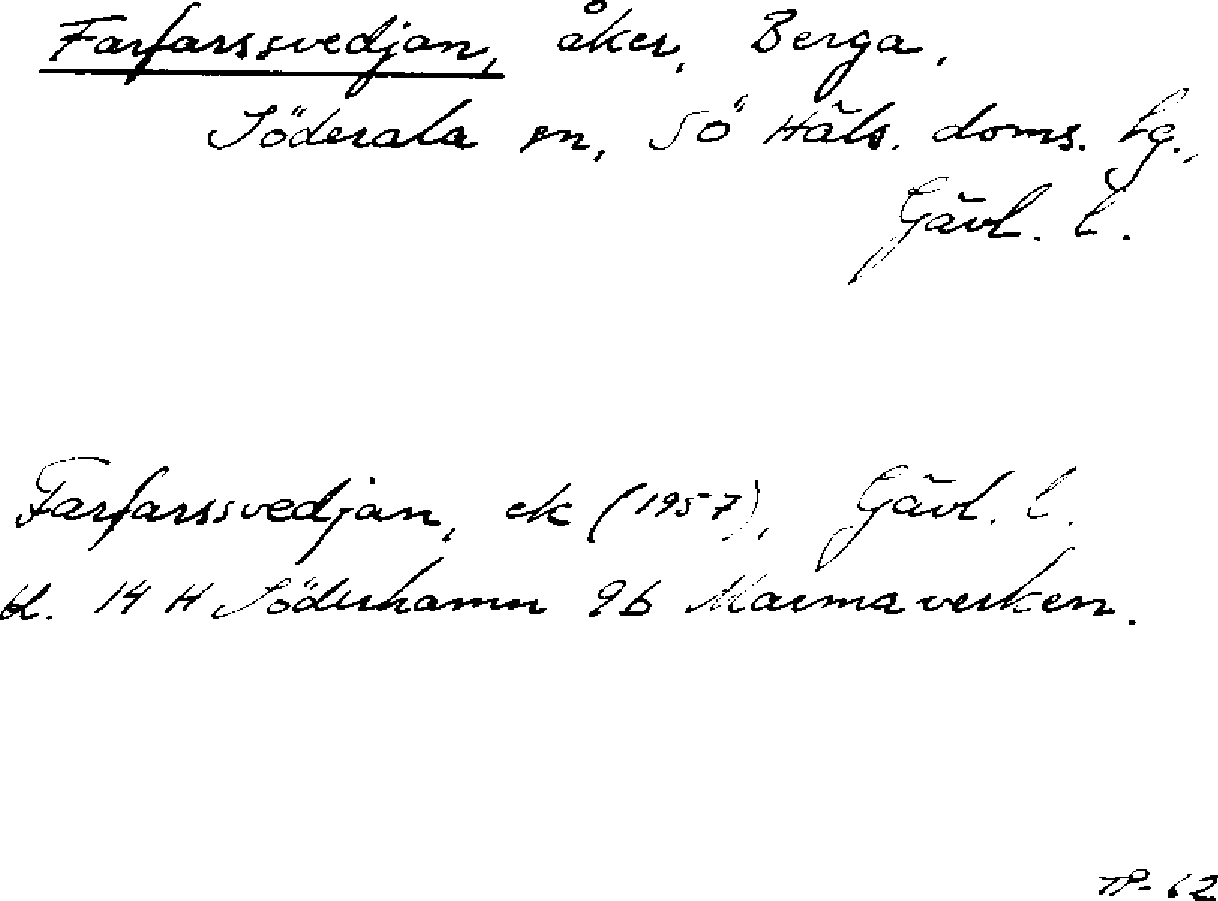 Farfarssvedjan, åker, Berga.
Söderala sn, SÖ Häls. doms. lg.,
Gävl. l.
Farfarssvedjan, ek (1957), Gävl. l.
bl. 14 H Söderhamn 9b Marmaverken.
TP-62